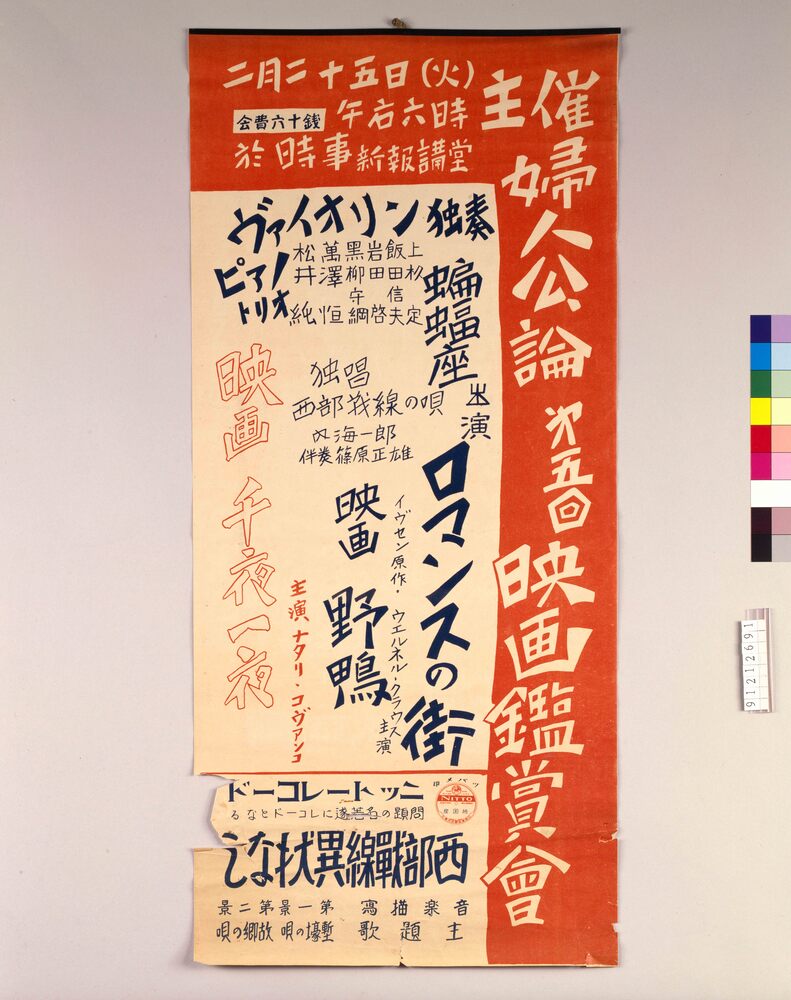 主催 婦人公論 第五回 映画鑑賞會
二月二十五日(火)
午后六時
会費六十銭
於 時事新報講堂
ヴァイオリン独奏
ピアノトリオ
上杉 定
飯田信夫
岩田 啓
黒柳守綱
萬澤 恒
松井 純
蝙蝠座出演
ロマンスの街
独唱
西部戦線の唄
内海一郎
伴奏 篠原正雄
イヴセン原作・ウエルネル・クラウス主演
映画 野鴨
主演 ナタリ・コヴァンコ
映画 千夜一夜
ツバメ印
NITTO
ニットーレコード
問題の名著遂にレコードとなる
西部戰線異状なし
音楽描寫
主題歌
第一景 第二景
塹壕の唄 故郷の唄
91212691